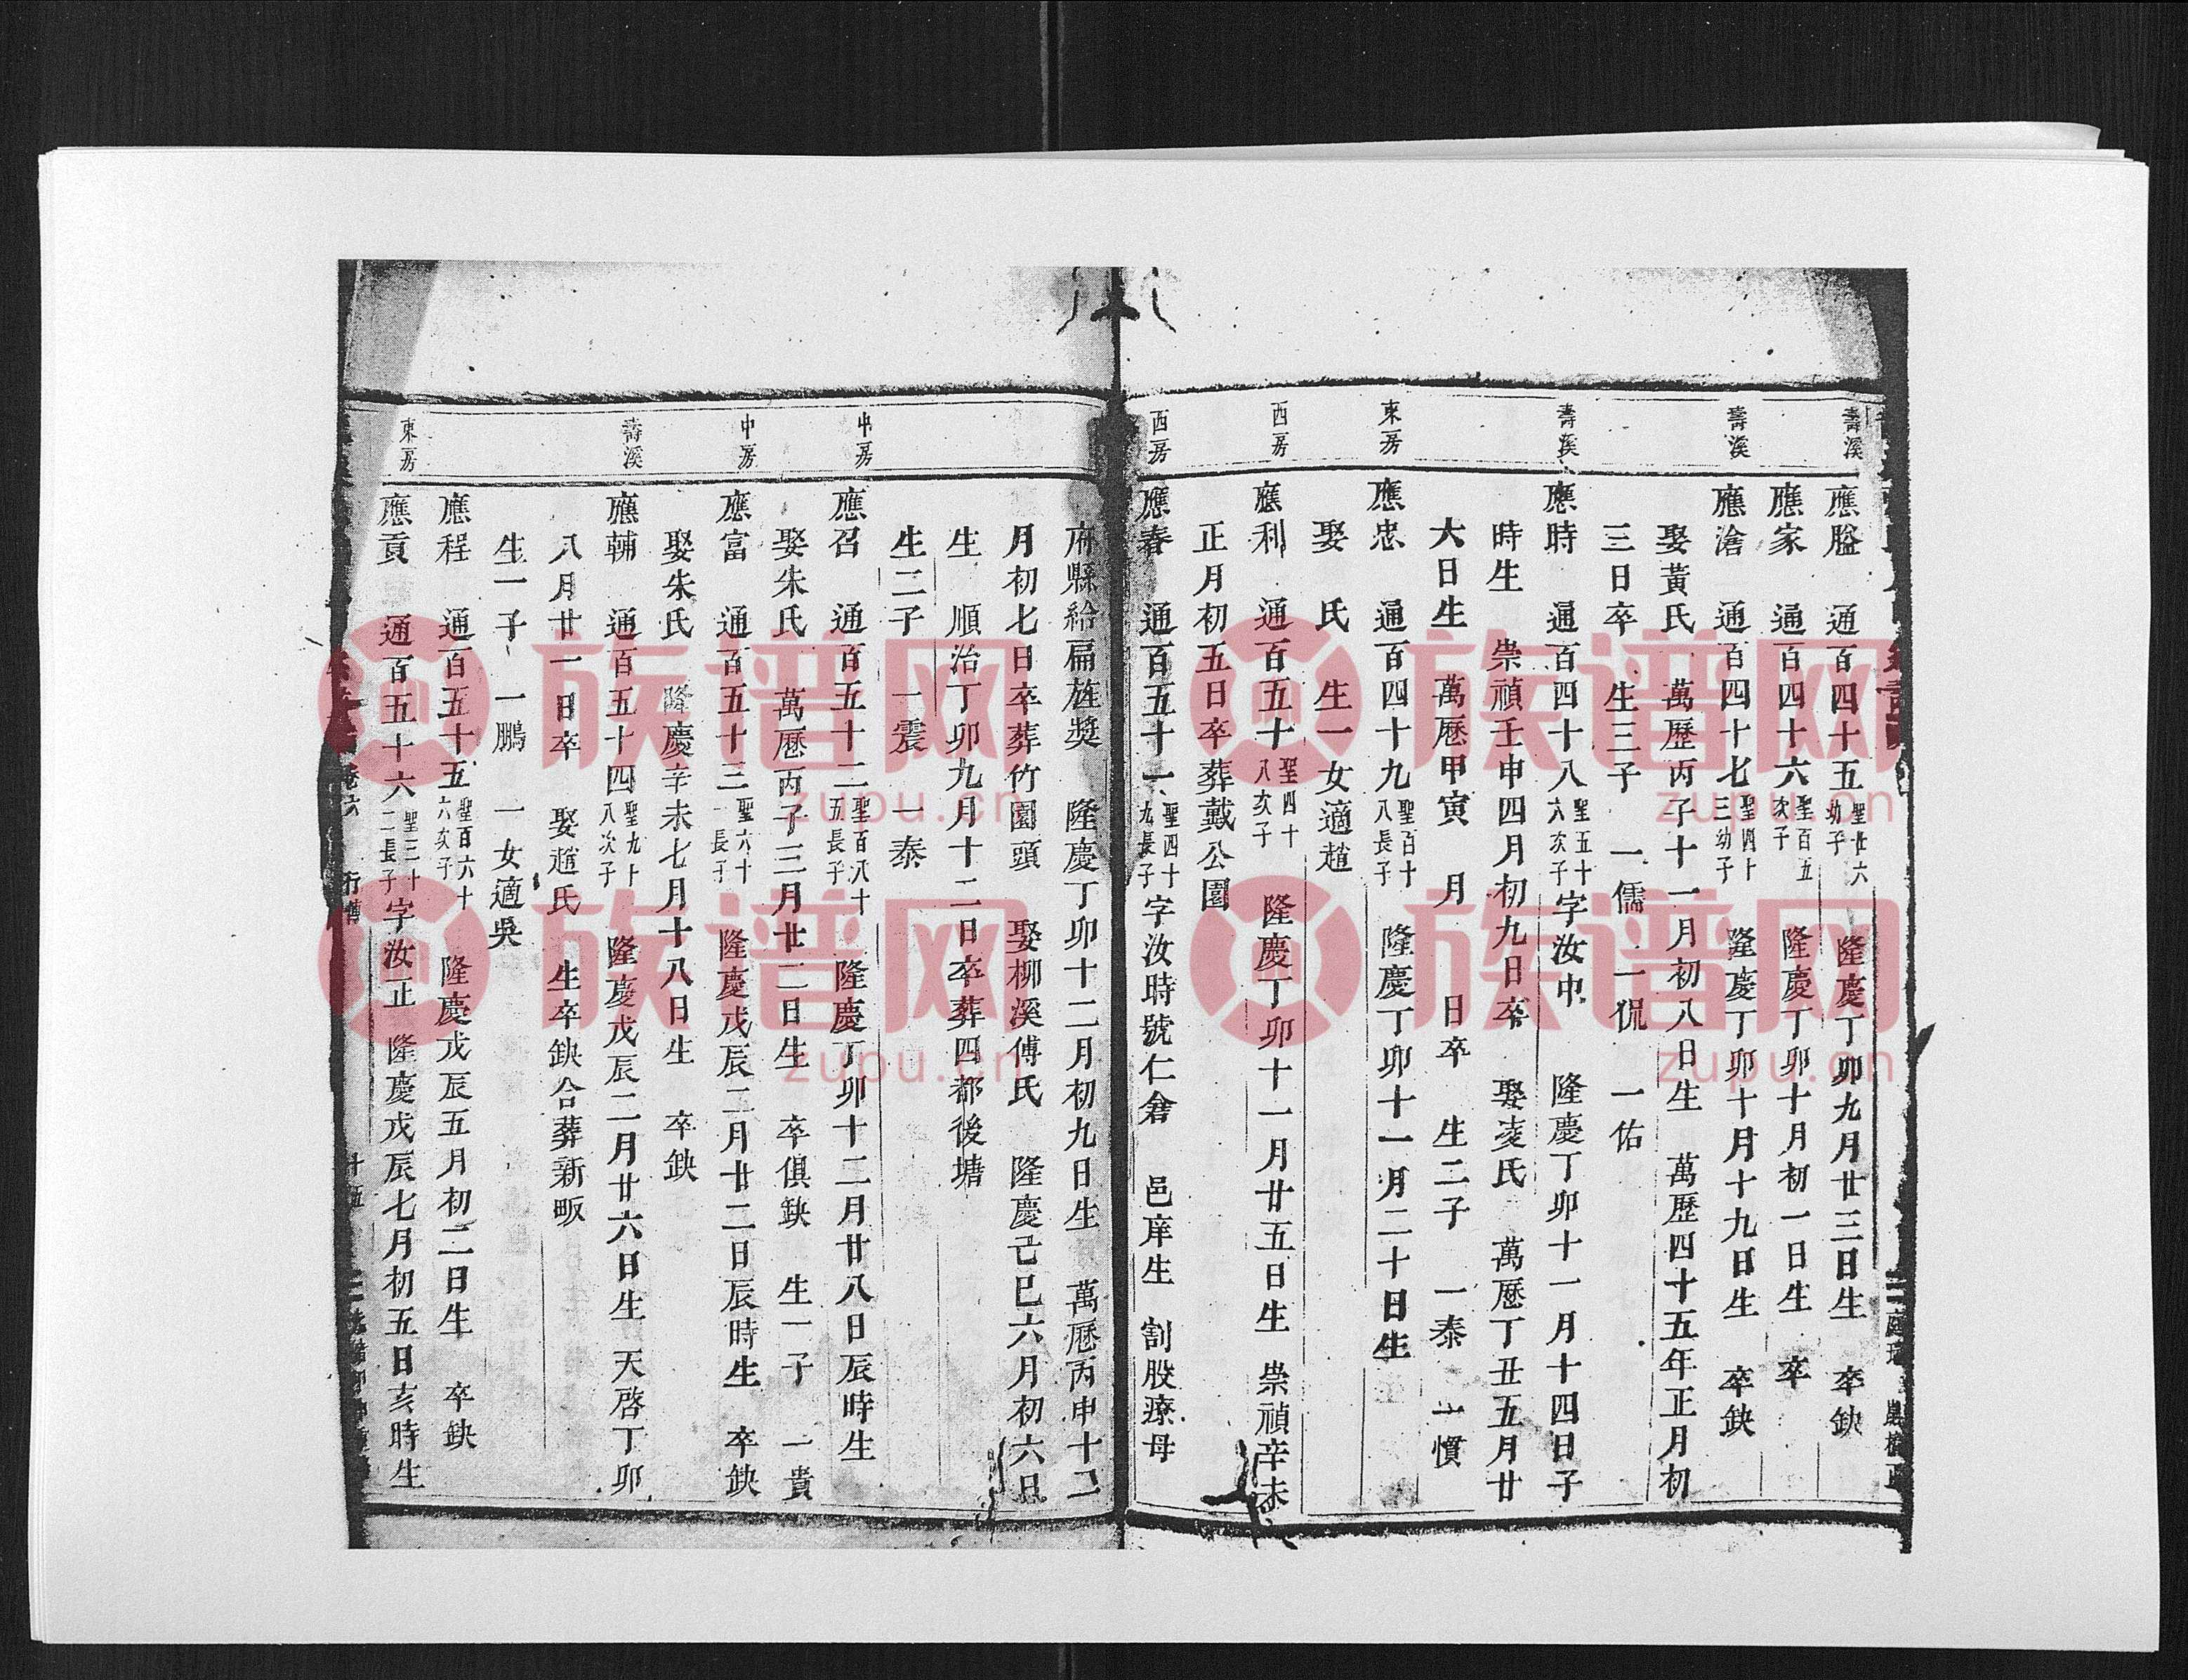 壽溪
應䐶 通百四十五 聖廿六幼子 隆慶丁卯九月廿三日生 卒鈌
應家 通百四十六 聖百五次子 隆慶丁卯十月初一日生 卒
壽溪
應滄 通百四十七 聖四十三幼子 隆慶丁卯十月十九日生 卒鈌
娶黃氏 萬歷丙子十一月初八日生 萬歷四十五年正月初
三日卒 生三子 一儒 一侃 一佑
壽溪
應時 通百四十八 聖五十六次子 字汝中 隆慶丁卯十一月十四日子
時生 崇禎壬申四月初九日卒 娶凌氏 萬歷丁丑五月廿
六日生 萬歷甲寅 月 日卒 生二子 一泰 一慣
東房
應忠 通百四十九 聖百十八長子 隆慶丁卯十一月二十日生
娶 氏 生一女適趙
西房
應利 通百五十 聖四十八次子 隆慶丁卯十一月廿五日生 崇禎辛未
正月初五日卒葬戴公園
西房
應春 通百五十一 聖四十九長子 字汝時號仁倉 邑庠生 割股療母
府縣給扁旌獎 隆慶丁卯十二月初九日生 萬歷丙申十二
月初七日卒葬竹園頭 娶柳溪傅氏 隆慶己巳六月初六日
生 順治丁卯九月十二日卒葬四都後塘
生二子 一震 一泰
中房
應召 通百五十二 聖百八十五長子 隆慶丁卯十二月廿八日辰時生
娶朱氏 萬歷丙子三月廿二日生 卒俱鈌 生一子 一貴
中房
應富 通百五十三 聖六十一長子 隆慶戊辰二月廿二日辰時生 卒鈌
娶朱氏 隆慶辛未七月十八日生 卒鈌
壽溪
應輔 通百五十四 聖九十八次子 隆慶戊辰二月廿六日生 天啓丁卯
八月廿一日卒 娶趙氏 生卒鈌合葬新畈
生一子 一鵬 一女適吳
應程 通百五十五 聖百六十六次子 隆慶戊辰五月初二日生 卒鈌
東房
應貢 通百五十六 聖三十二長子 字汝正 隆慶戊辰七月初五日亥時生
卷六 行傳
十五
族谱网
zupu.cn
族谱网
zupu.cn
族谱网
zupu.cn
族谱网
zupu.cn